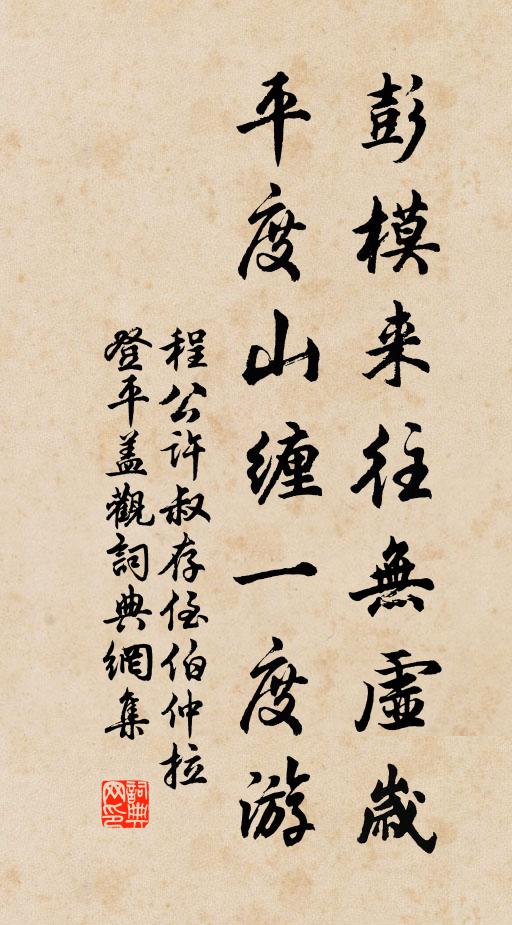 彭模来往無虛歲
平度山纏一度游
程公许叔存侄伯仲拉
登平盖觀詞典網集
詞典网印